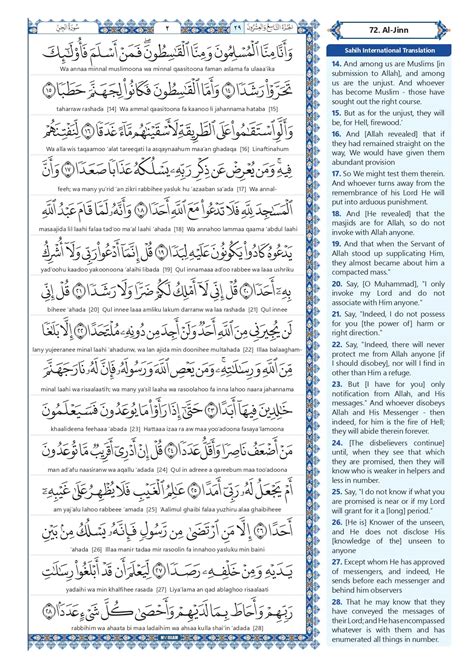 سُورَةُ الجِنِّ
٢
٢٩
الجُزْءُ التَّاسِعُ وَالعِشْرُونَ
وَأَنَّا مِنَّا ٱلْمُسْلِمُونَ وَمِنَّا ٱلْقَٰسِطُونَ ۖ فَمَنْ أَسْلَمَ فَأُو۟لَٰٓئِكَ
Wa annaa minnal muslimoona wa minnal qaasitoona faman aslama fa ulaaa'ika
تَحَرَّوْا۟ رَشَدًا ﴿١٤﴾ وَأَمَّا ٱلْقَٰسِطُونَ فَكَانُوا۟ لِجَهَنَّمَ حَطَبًا ﴿١٥﴾
taharraw rashada [14] Wa ammal qaasitoona fa kaanoo li jahannama hataba [15]
وَأَلَّوِ ٱسْتَقَٰمُوا۟ عَلَى ٱلطَّرِيقَةِ لَأَسْقَيْنَٰهُم مَّآءً غَدَقًا ﴿١٦﴾ لِّنَفْتِنَهُمْ
Wa alla wis taqaamoo 'alat tareeqati la asqaynaahum maa'an ghadaqa [16] Linaftinahum
فِيهِ ۚ وَمَن يُعْرِضْ عَن ذِكْرِ رَبِّهِۦ يَسْلُكْهُ عَذَابًا صَعَدًا ﴿١٧﴾ وَأَنَّ
feeh; wa many yu'rid 'an zikri rabbihee yasluk hu 'azaaban sa'ada [17] Wa annal-
ٱلْمَسَٰجِدَ لِلَّهِ فَلَا تَدْعُوا۟ مَعَ ٱللَّهِ أَحَدًا ﴿١٨﴾ وَأَنَّهُۥ لَمَّا قَامَ عَبْدُ ٱللَّهِ
masaajida lil laahi falaa tad'oo ma'al laahi ahada [18] Wa annahoo lammaa qaama 'abdul laahi
يَدْعُوهُ كَادُوا۟ يَكُونُونَ عَلَيْهِ لِبَدًا ﴿١٩﴾ قُلْ إِنَّمَآ أَدْعُوا۟ رَبِّى وَلَآ أُشْرِكُ
yad'oohu kaadoo yakoonoona 'alaihi libada [19] Qul innamaa ad'oo rabbee wa laaa ushriku
بِهِۦٓ أَحَدًا ﴿٢٠﴾ قُلْ إِنِّى لَآ أَمْلِكُ لَكُمْ ضَرًّا وَلَا رَشَدًا ﴿٢١﴾ قُلْ إِنِّى
biheee 'ahada [20] Qul innee laaa amliku lakum darranw wa laa rashada [21] Qul innee
لَن يُجِيرَنِى مِنَ ٱللَّهِ أَحَدٌ وَلَنْ أَجِدَ مِن دُونِهِۦ مُلْتَحَدًا ﴿٢٢﴾ إِلَّا بَلَٰغًا
lany yujeeranee minal laahi 'ahadunw, wa lan ajida min doonihee multahada [22] Illaa balaagham-
مِّنَ ٱللَّهِ وَرِسَٰلَٰتِهِۦ ۚ وَمَن يَعْصِ ٱللَّهَ وَرَسُولَهُۥ فَإِنَّ لَهُۥ نَارَ جَهَنَّمَ
minal laahi wa risaalaatih; wa many ya'sil laaha wa rasoolahoo fa inna lahoo naara jahannama
خَٰلِدِينَ فِيهَآ أَبَدًا ﴿٢٣﴾ حَتَّىٰٓ إِذَا رَأَوْا۟ مَا يُوعَدُونَ فَسَيَعْلَمُونَ
khaalideena feehaaa 'abada [23] Hattaaa izaa ra aw maa yoo'adoona fasaya'lamoona
مَنْ أَضْعَفُ نَاصِرًا وَأَقَلُّ عَدَدًا ﴿٢٤﴾ قُلْ إِنْ أَدْرِىٓ أَقَرِيبٌ مَّا تُوعَدُونَ
man ad'afu naasiranw wa aqallu 'adada [24] Qul in adreee a qareebum maa too'adoona
أَمْ يَجْعَلُ لَهُۥ رَبِّىٓ أَمَدًا ﴿٢٥﴾ عَٰلِمُ ٱلْغَيْبِ فَلَا يُظْهِرُ عَلَىٰ غَيْبِهِۦٓ
am yaj'alu lahoo rabbeee 'amada [25] 'Aalimul ghaibi falaa yuzhiru alaa ghaibiheee
أَحَدًا ﴿٢٦﴾ إِلَّا مَنِ ٱرْتَضَىٰ مِن رَّسُولٍ فَإِنَّهُۥ يَسْلُكُ مِنۢ بَيْنِ
'ahada [26] Illaa manir tadaa mir rasoolin fa innahoo yasluku mim baini
يَدَيْهِ وَمِنْ خَلْفِهِۦ رَصَدًا ﴿٢٧﴾ لِّيَعْلَمَ أَن قَدْ أَبْلَغُوا۟ رِسَٰلَٰتِ
yadaihi wa min khalfihee rasada [27] Liya'lama an qad ablaghoo risaalaati
رَبِّهِمْ وَأَحَاطَ بِمَا لَدَيْهِمْ وَأَحْصَىٰ كُلَّ شَىْءٍ عَدَدًا ﴿٢٨﴾
rabbihim wa ahaata bi maa ladaihim wa ahsaa kulla shai'in 'adada [28]
MY ISLAM
72. Al-Jinn
Sahih International Translation
14. And among us are Muslims [in
submission to Allah], and among
us are the unjust. And whoever
has become Muslim - those have
sought out the right course.
15. But as for the unjust, they will
be, for Hell, firewood.'
16. And [Allah revealed] that if
they had remained straight on the
way, We would have given them
abundant provision
17. So We might test them therein.
And whoever turns away from the
remembrance of his Lord He will
put into arduous punishment.
18. And [He revealed] that the
masjids are for Allah, so do not
invoke with Allah anyone.
19. And that when the Servant of
Allah stood up supplicating Him,
they almost became about him a
compacted mass."
20. Say, [O Muhammad], "I only
invoke my Lord and do not
associate with Him anyone."
21. Say, "Indeed, I do not possess
for you [the power of] harm or
right direction."
22. Say, "Indeed, there will never
protect me from Allah anyone [if
I should disobey], nor will I find in
other than Him a refuge.
23. But [I have for you] only
notification from Allah, and His
messages." And whoever disobeys
Allah and His Messenger - then
indeed, for him is the fire of Hell;
they will abide therein forever.
24. [The disbelievers continue]
until, when they see that which
they are promised, then they will
know who is weaker in helpers and
less in number.
25. Say, "I do not know if what you
are promised is near or if my Lord
will grant for it a [long] period."
26. [He is] Knower of the unseen,
and He does not disclose His
[knowledge of the] unseen to
anyone
27. Except whom He has approved
of messengers, and indeed, He
sends before each messenger and
behind him observers
28. That he may know that they
have conveyed the messages of
their Lord; and He has encompassed
whatever is with them and has
enumerated all things in number.